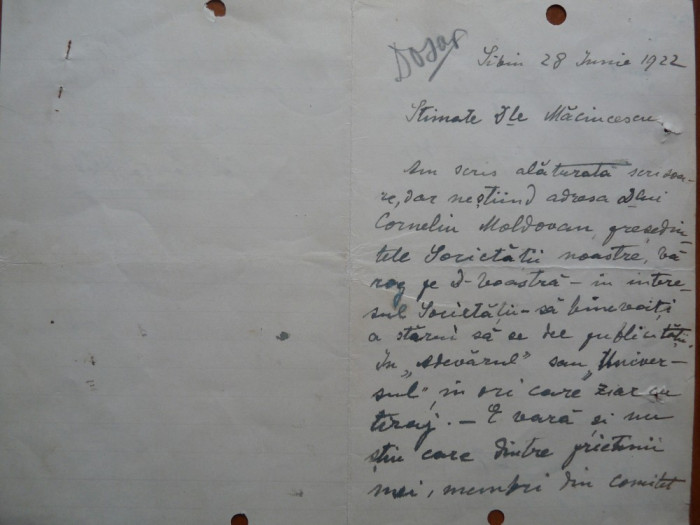 Dosar
Sibiu 28 Iunie 1922
Stimate Dle Măcincescu,
Am scris alăturată scrisoa-
re, dar neștiind adresa Dlui
Corneliu Moldovan, președin-
tele Societății noastre, vă
rog pe D-voastră – în intere-
sul Societății – să binevoiți
a stărui să se dee publicității
în „Adevărul" sau „Univer-
sul", în ori care ziar cu
tiraj. – E vară și nu
știu care dintre prietenii
mei, membri din comitet